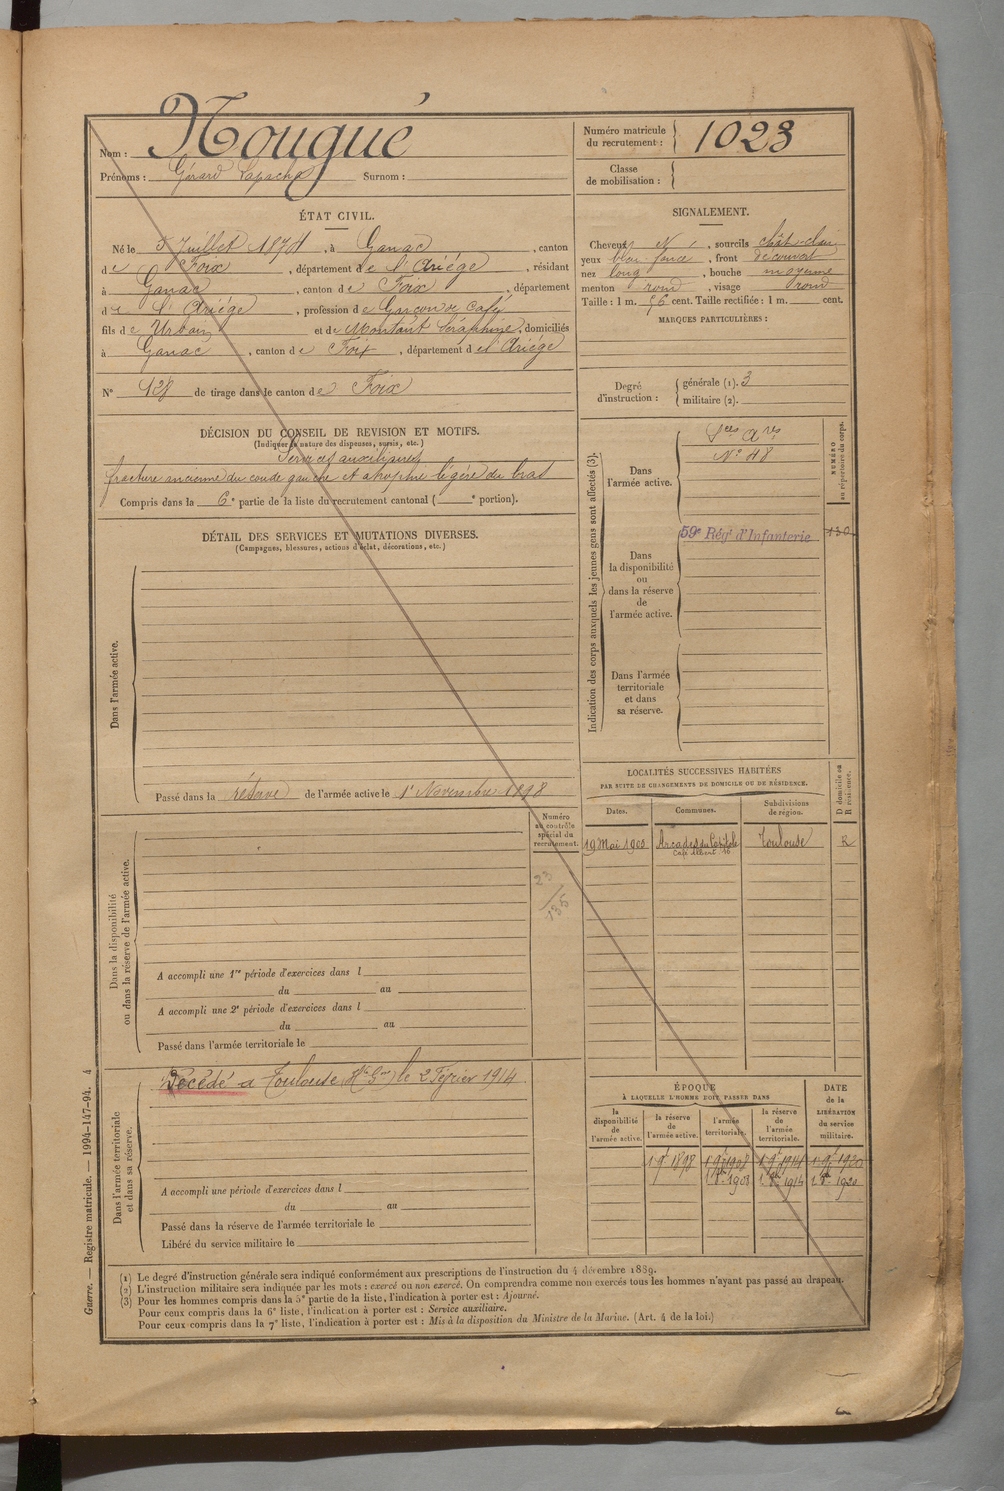 Nom : Nougué
Prénoms : Gérard Surnom :
Numéro matricule
du recrutement : 1023
Classe
de mobilisation :
ÉTAT CIVIL.
Né le 5 Juillet 1874, à Ganac, canton
de Foix, département de l'Ariége, résidant
à Ganac, canton de Foix, département
de l'Ariége, profession de Garçon de Café
fils de Urbain et de Montaut Séraphine, domiciliés
à Ganac, canton de Foix, département de l'Ariége
N° 128 de tirage dans le canton de Foix
SIGNALEMENT.
Cheveux N, sourcils chât-clair
yeux bleu foncé, front découvert
nez long, bouche moyenne
menton rond, visage rond
Taille : 1 m. 56 cent. Taille rectifiée : 1 m. cent.
MARQUES PARTICULIÈRES :
Degré
d'instruction :
générale (1). 3
militaire (2).
DÉCISION DU CONSEIL DE REVISION ET MOTIFS.
(Indiquer la nature des dispenses, sursis, etc.)
Services auxiliaires
fracture ancienne du coude gauche et atrophie légère du bras
Compris dans la 6e partie de la liste du recrutement cantonal ( e portion).
DÉTAIL DES SERVICES ET MUTATIONS DIVERSES.
(Campagnes, blessures, actions d'éclat, décorations, etc.)
Dans l'armée active.
Passé dans la réserve de l'armée active le 1er Novembre 1898
Indication des corps auxquels les jeunes gens sont affectés (3).
NUMÉRO
au répertoire du corps.
Dans
l'armée active.
Sces Ares
N° 48
59e Régt d'Infanterie 130
Dans
la disponibilité
ou
dans la réserve
de
l'armée active.
Dans l'armée
territoriale
et dans
sa réserve.
LOCALITÉS SUCCESSIVES HABITÉES
PAR SUITE DE CHANGEMENTS DE DOMICILE OU DE RÉSIDENCE.
D domicile ou
R résidence.
Dates. Communes. Subdivisions
de région.
19 Mai 1900 Arcades du Capitole Toulouse R
Café Albert 16
Numéro
au contrôle
spécial du
recrutement.
23
135
Dans la disponibilité
ou dans la réserve de l'armée active.
A accompli une 1re période d'exercices dans l
du au
A accompli une 2e période d'exercices dans l
du au
Passé dans l'armée territoriale le
Dans l'armée territoriale
et dans sa réserve.
Décédé à Toulouse (Hte Gne) le 2 Février 1914
A accompli une période d'exercices dans l
du au
Passé dans la réserve de l'armée territoriale le
Libéré du service militaire le
ÉPOQUE
À LAQUELLE L'HOMME DOIT PASSER DANS
DATE
de la
LIBÉRATION
du service
militaire.
la
disponibilité
de
l'armée active.
la réserve
de
l'armée active.
l'armée
territoriale.
la réserve
de
l'armée
territoriale.
1 9bre 1898 1 9bre 1908 1 9bre 1914 1 9bre 1920
(1) Le degré d'instruction générale sera indiqué conformément aux prescriptions de l'instruction du 4 décembre 1889.
(2) L'instruction militaire sera indiquée par les mots : exercé ou non exercé. On comprendra comme non exercés tous les hommes n'ayant pas passé au drapeau.
(3) Pour les hommes compris dans la 5e partie de la liste, l'indication à porter est : Ajourné.
Pour ceux compris dans la 6e liste, l'indication à porter est : Service auxiliaire.
Pour ceux compris dans la 7e liste, l'indication à porter est : Mis à la disposition du Ministre de la Marine. (Art. 4 de la loi.)
Guerre. — Registre matricule. — 1994-147-94. 4